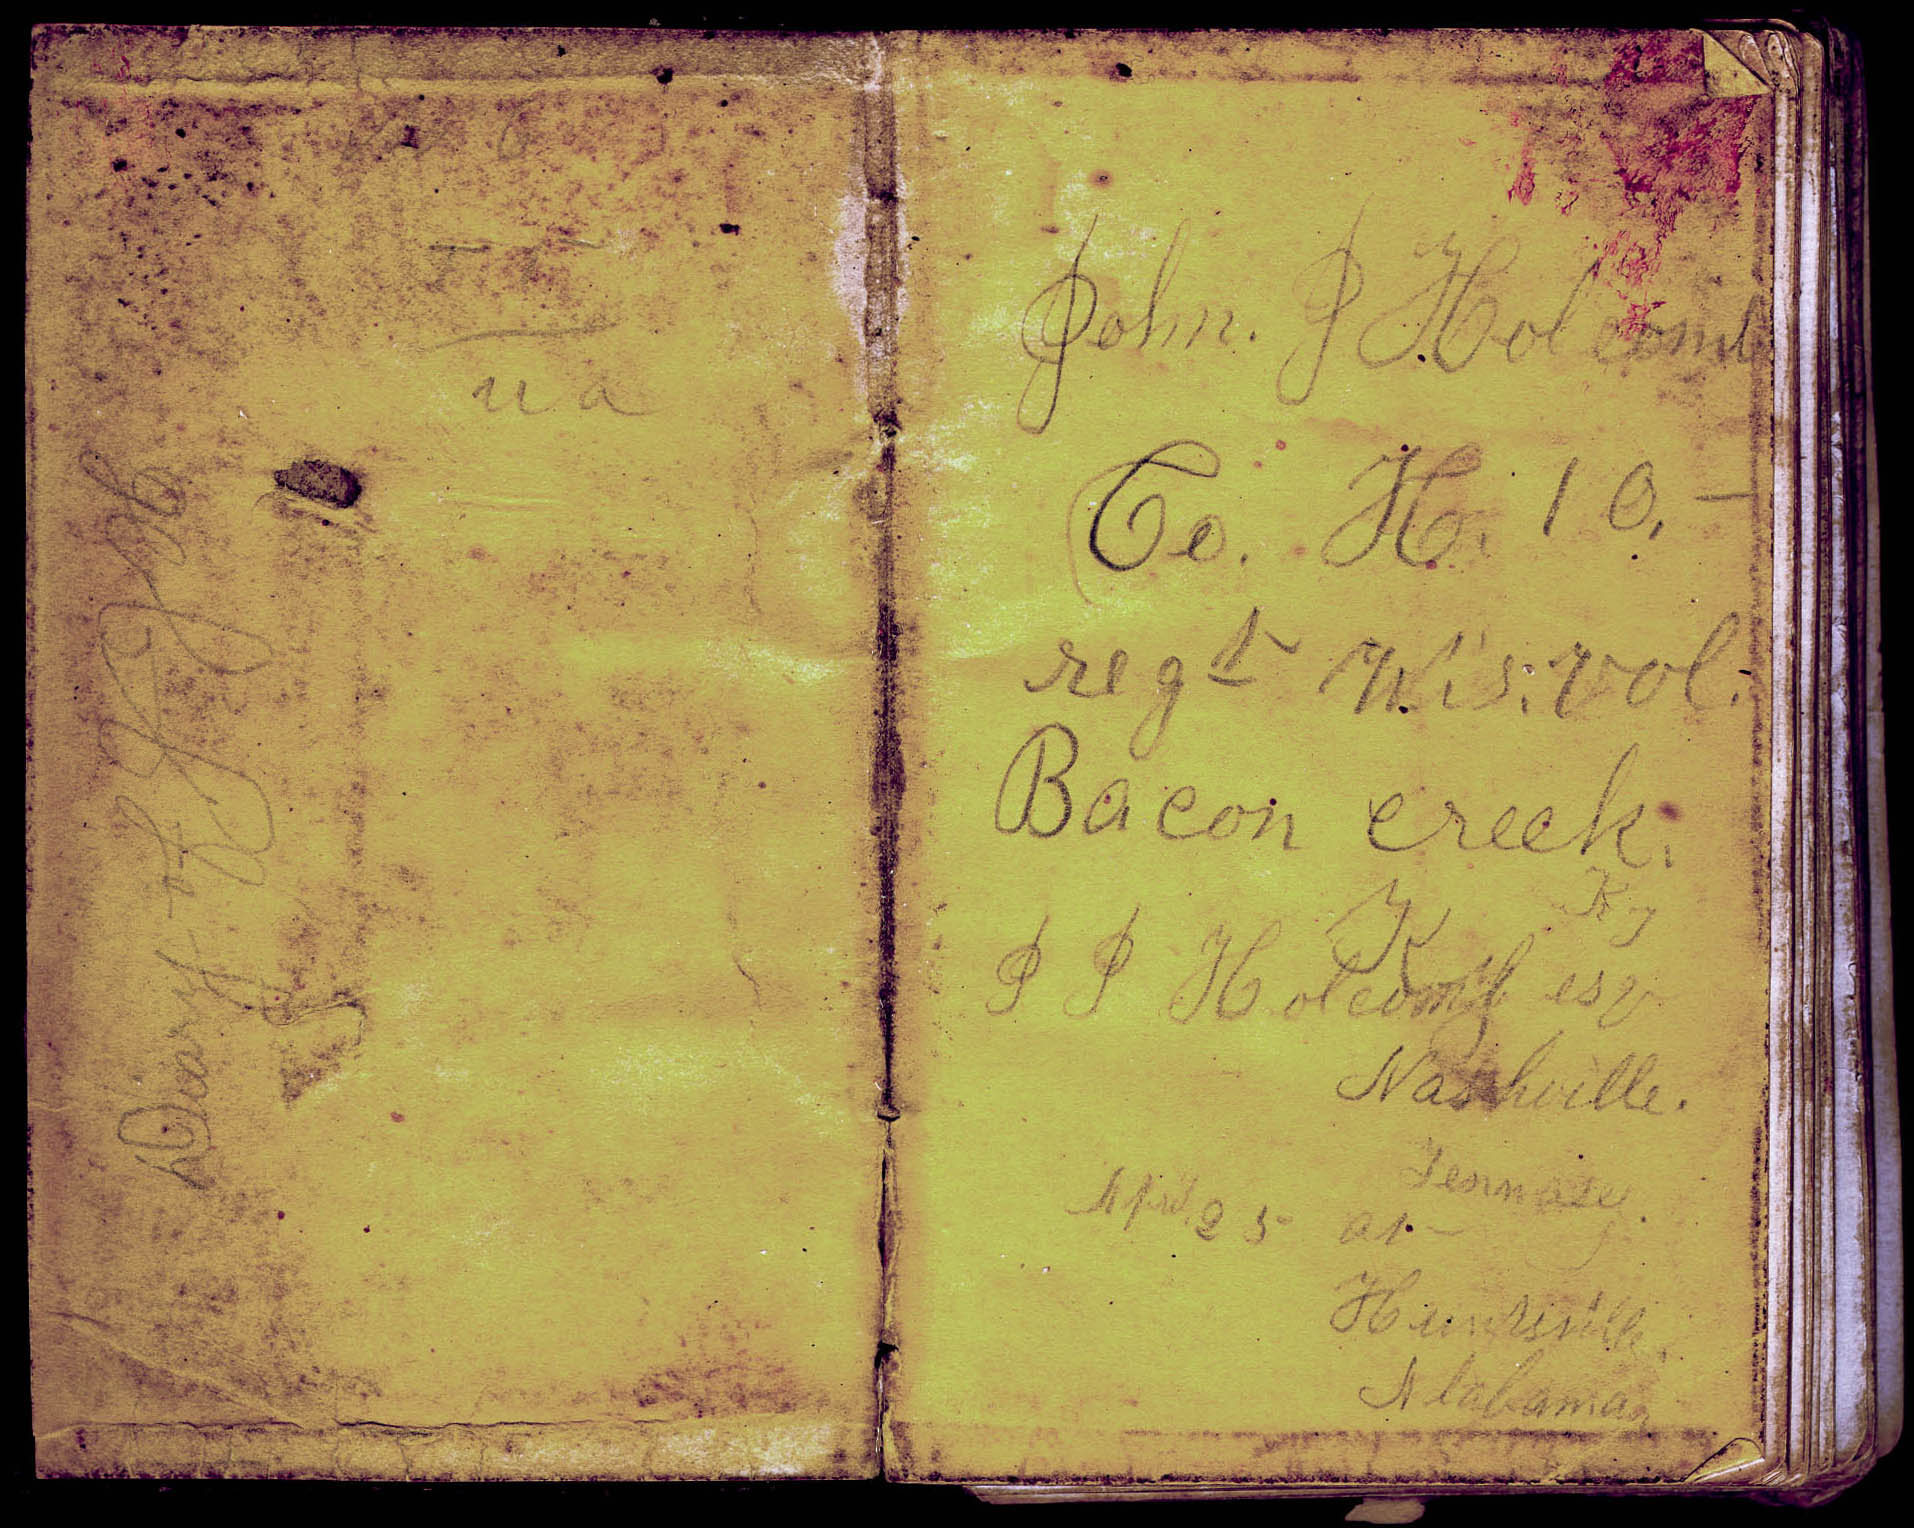 u a
Diary of J J H
John. J Holcomb
Co. H. 10, –
regt Wis. vol.
Bacon creek.
Ky
J J Holcomb esq
Nashville.
Tennasee.
April 25 at
Huntsville,
Alabama